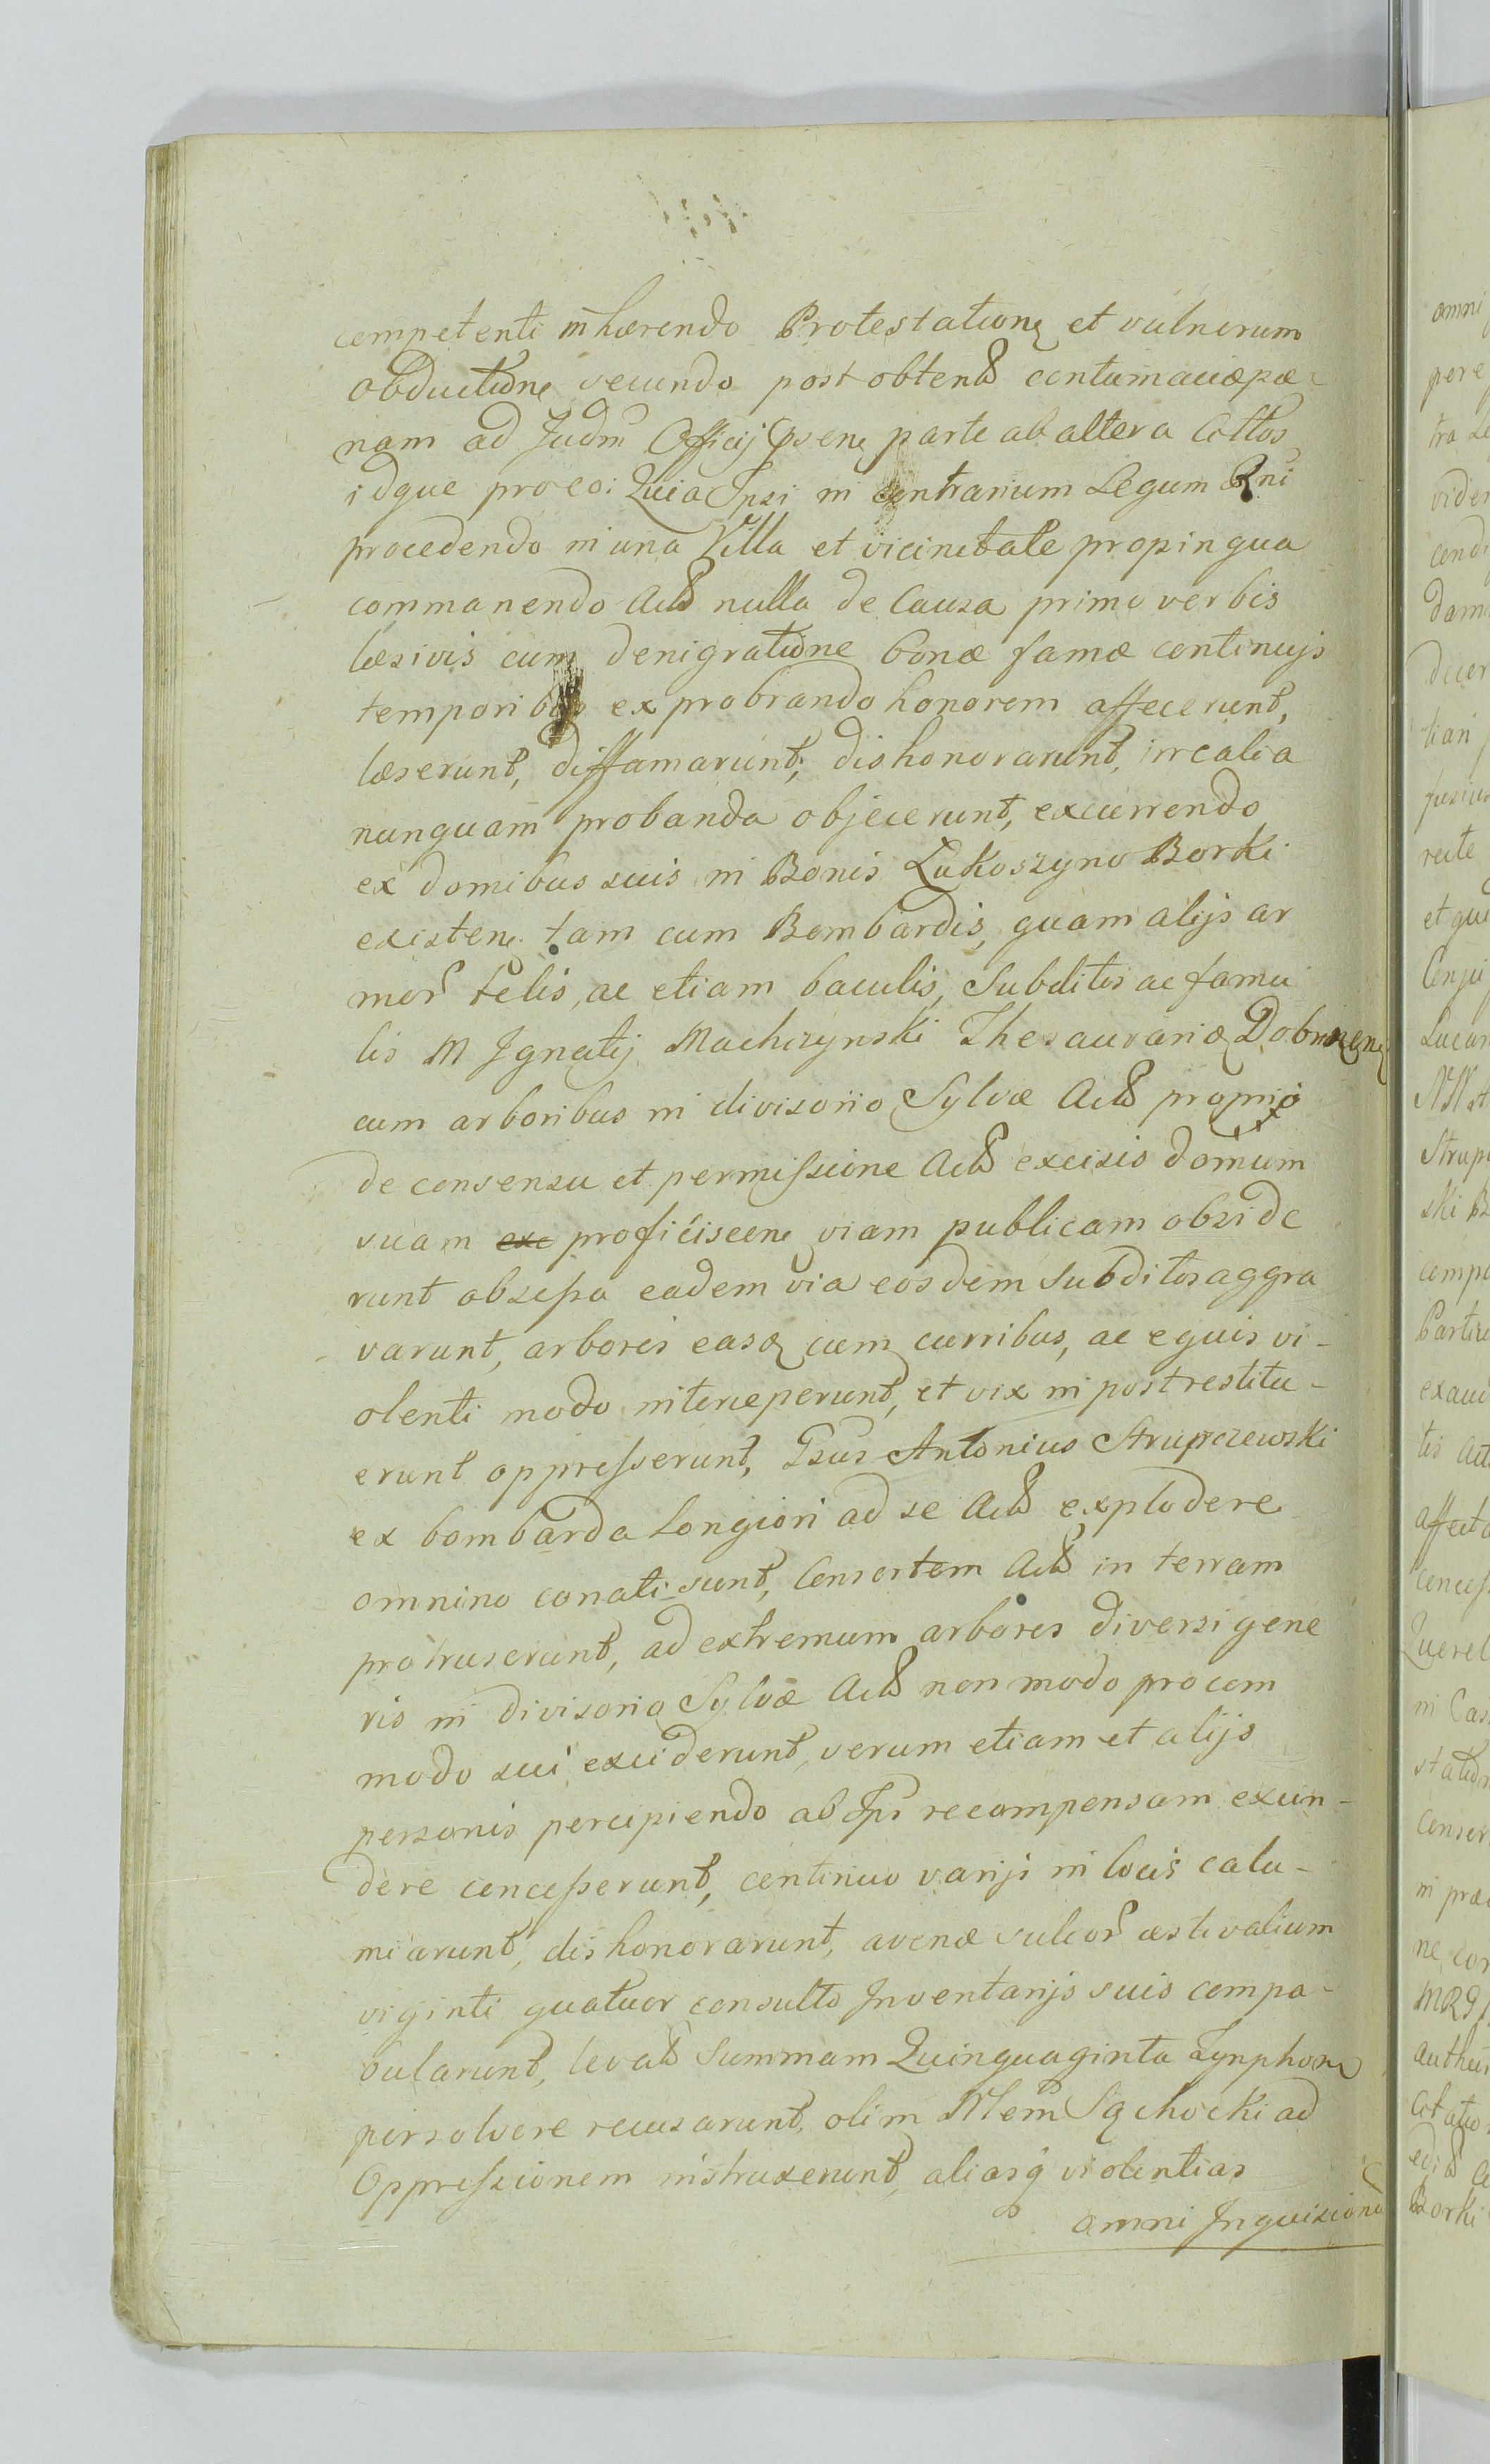 competenti inhærendo Protestatione et vulnerum
obductione secundo post obtent contumaciæ pæ-
nam ad Judm Officij Psene parte ab altera Cittos
idque pro eo: Quia Ipsi in contrarium Legum Rni
procedendo in una Villa et vicinitate propinqua
commanendo Acts nulla de Causa primo verbis
læsivis cum denigratione bonæ famæ continujs
temporibus exprobrando honorem affecerunt,
læserunt, diffamarunt, dishonorarunt, irrealia
nunquam probanda objecerunt, excurrendo
ex domibus suis in Bonis Lukoszyno Borki
existen. tam cum Bombardis, quam alijs ar
mor telis, ac etiam baculis, Subditos ac famu
lis M Ignatij Machczynski Thesaurariæ Dobrzgne
cum arboribus in divisorio Sylvæ Acts proprio
de consensu et permissione Acts excisis domum
suam exc proficiscene viam publicam obside
runt obsessa eadem via eosdem Subditos aggra
varunt, arbores easq cum curribus, ac equis vi-
olenti modo interceperunt, et vix in post restitu-
erunt oppresserunt, Psus Antonius Strupczewski
ex bombarda longiori ad se Acts explodere
omnino conati sunt, Consortem Acts in terram
protruserunt, ad extremum arbores diversi gene
ris in divisorio Sylvæ Acts non modo pro com
modo sui exciderunt, verum etiam et alijs
personis percipiendo ab Ips recompensam excin-
dere concesserunt, continuo varijs in locis calu-
miarunt, dishonorarunt, avenæ sulcor æstivalium
viginti quatuor consulto Inventarijs suis compa-
bularunt, levats Summam Quinquaginta Tynphon
persolvere recusarunt, olim Mem Sąchocki ad
Oppressionem instruxerunt, aliasq violentias
omni Inquisicione